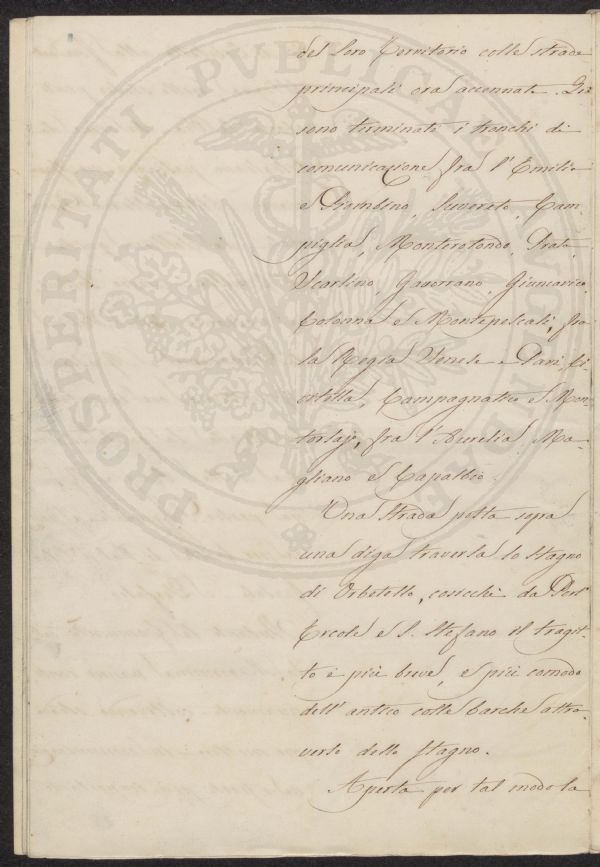 del loro Territorio colle strade
principali ora accennate. Qui
sono terminati i tronchi di
comunicazione fra l'Emilia
e Piombino, Suvereto, Cam-
piglia, Monterotondo, Prata,
Scarlino, Gavorrano, Giuncarico,
Colonna e Montepescali, fra
la Regia Senese e Pari, Ci-
vitella, Campagnatico e Mon-
torsajo, fra l'Aurelia Ma-
gliano e Capalbio.
Una strada posta sopra
una diga traversa lo stagno
di Orbetello, cosicchè da Port'
Ercole e S. Stefano il tragit-
to è più breve, e più comodo
dell'antico colle barche attra-
verso dello stagno.
Aperta per tal modo la
PROSPERITATI PVBLICAE